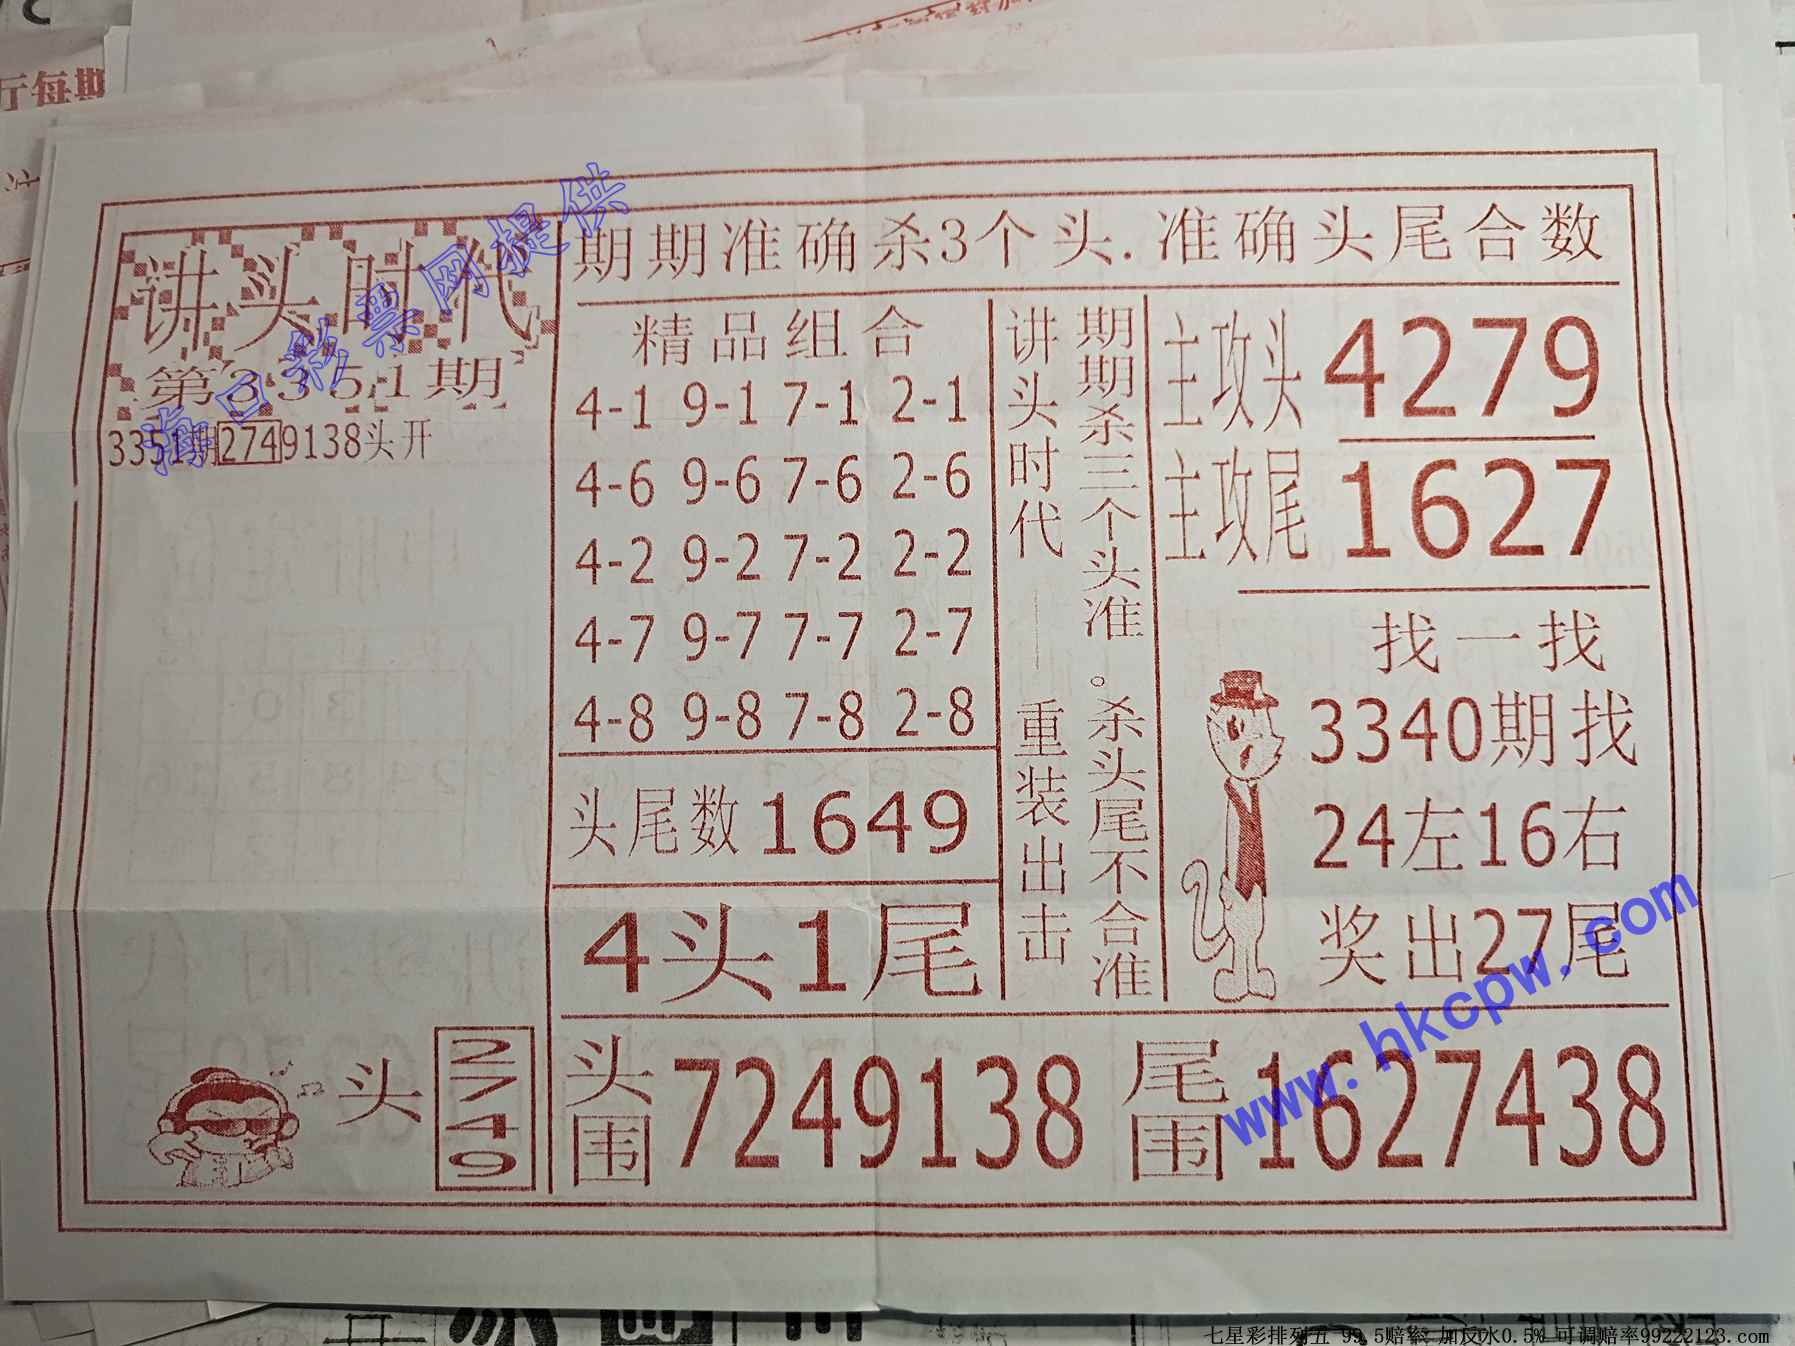 斤每期
讲头时代
第3351期
3351期2749138头开
海口彩票网提供
期期准确杀3个头.准确头尾合数
精品组合
4-1 9-1 7-1 2-1
4-6 9-6 7-6 2-6
4-2 9-2 7-2 2-2
4-7 9-7 7-7 2-7
4-8 9-8 7-8 2-8
头尾数1649
4头1尾
讲头时代——重装出击
期期杀三个头准。杀头尾不合准
主攻头4279
主攻尾1627
找一找
3340期找
24左16右
奖出27尾
头2749
头围7249138
尾围1627438
www.hkcpw.com
七星彩排列五 99.5赔率 加反水0.5% 可调赔率99222123.com